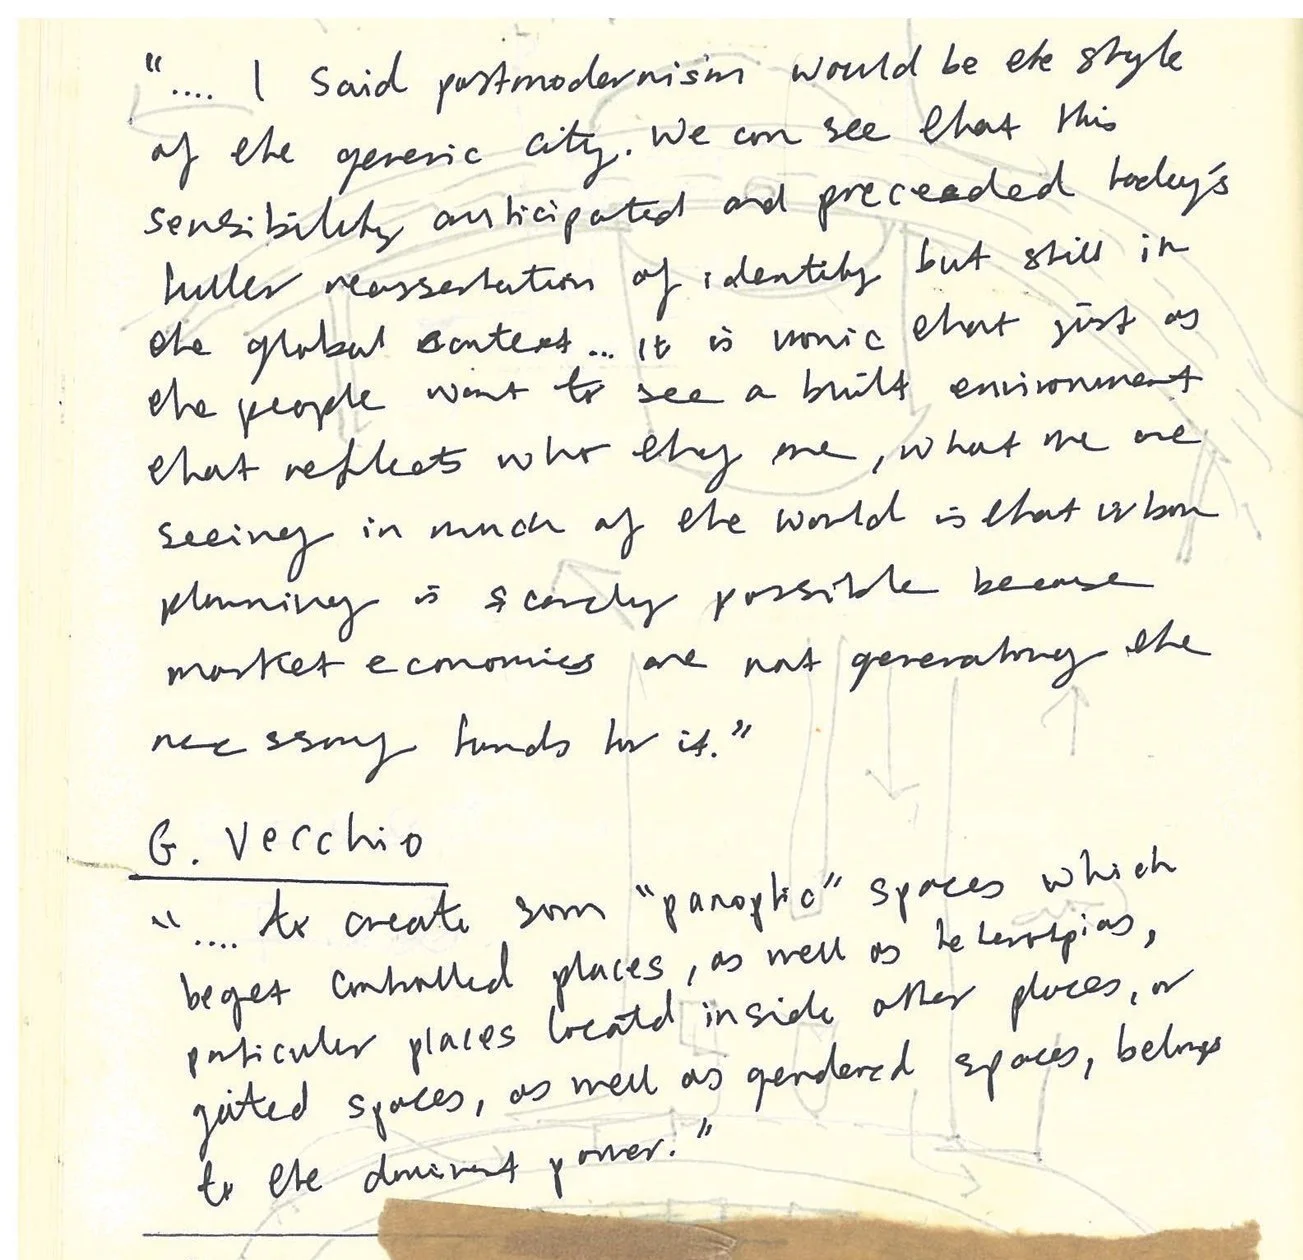 ".... I said postmodernism would be the style
of the generic city. We can see that this
sensibility anticipated and preceeded today's
fuller reassertation of identity but still in
the global context... it is ironic that just as
the people want to see a built environment
that reflects who they are, what we are
seeing in much of the world is that urban
planning is scarcely possible because
market economies are not generating the
necessary funds for it."
G. Vecchio
".... to create some "panoptic" spaces which
beget controlled places, as well as heterotpias,
particular places located inside other places, or
gated spaces, as well as gendered spaces, belongs
to the dominant power."